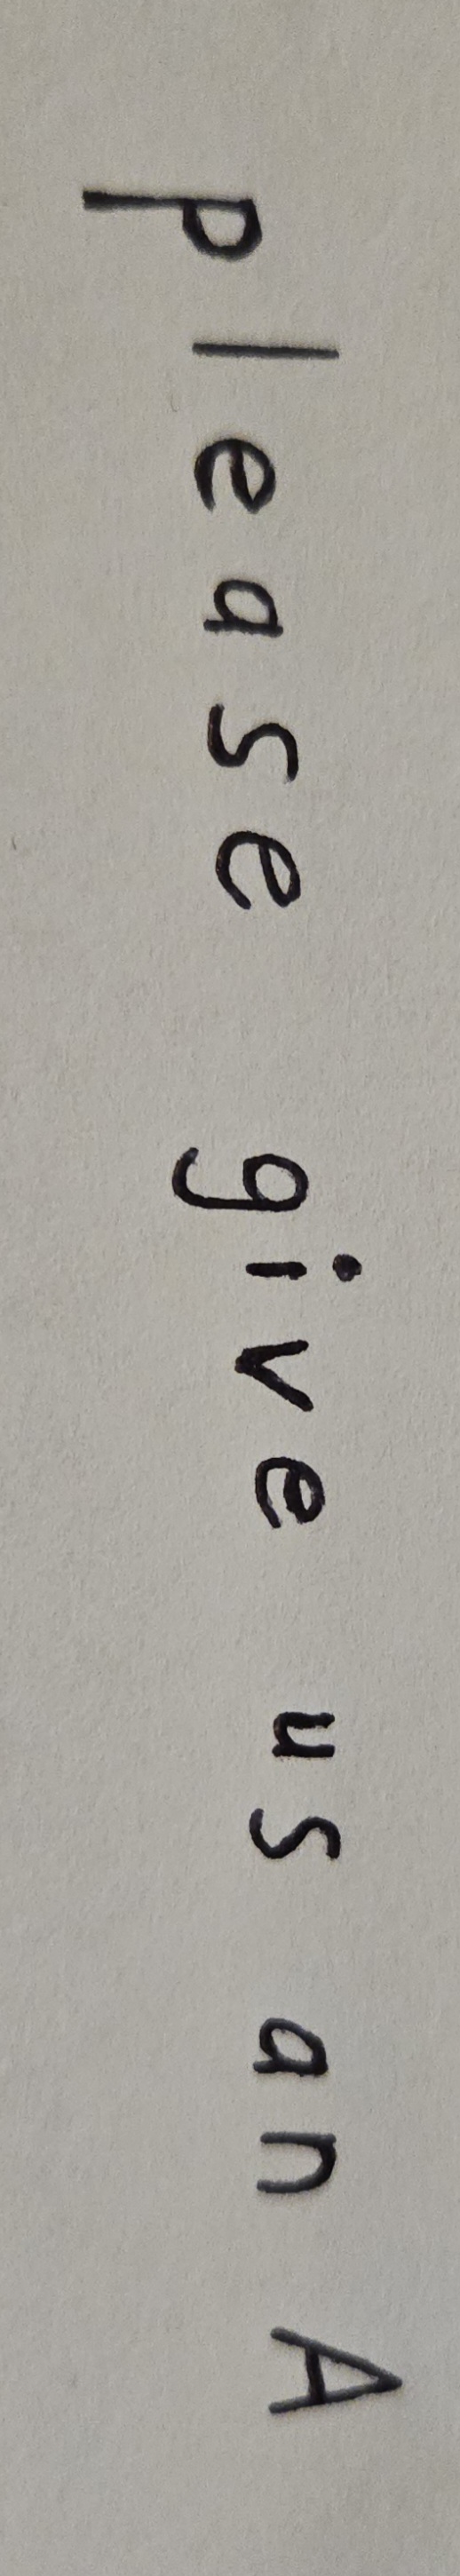 please give us an A